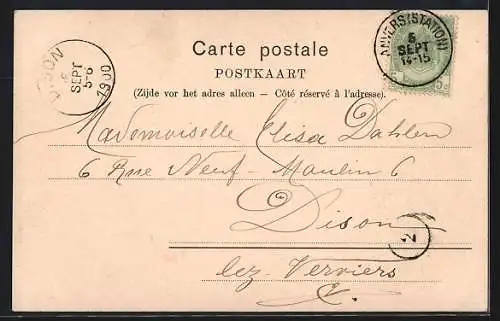 Carte postale
POSTKAART
(Zijde voor het adres alleen – Côté réservé à l'adresse).
ANVERS (STATION)
5
SEPT
14-15
DISON
SEPT
5-6
1900
5 c
Mademoiselle Elisa Dahlem
6 Rue Neuf-Moulin 6
Dison
2
lez-Verviers